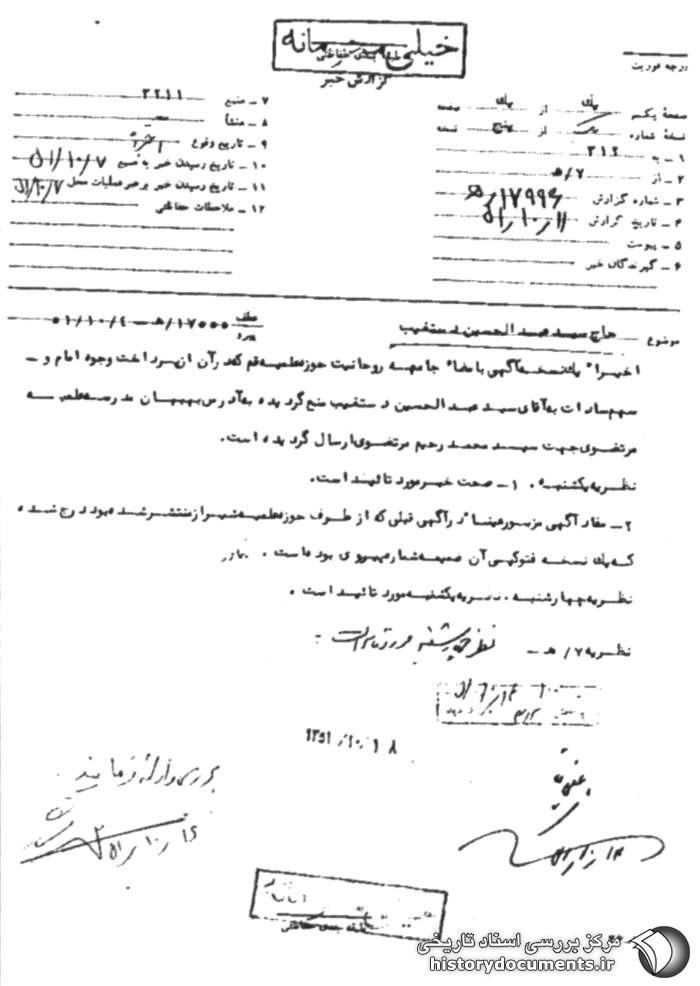 خیلی محرمانه
طبقه بندی حفاظتی
گزارش خبر
درجه فوریت
صفحهٔ یکم از یک صفحه
نسخهٔ شماره یک از پنج نسخه
۱ ـ به ۳۱۲
۲ ـ از ۷/ﻫ
۳ ـ شماره گزارش ۱۷۹۹۶/ﻫ
۴ ـ تاریخ گزارش ۵۱/۱۰/۱۱
۵ ـ پیوست
۶ ـ گیرندگان خبر
۷ ـ منبع ۲۲۱۱
۸ ـ منشأ
۹ ـ تاریخ وقوع اخیراً
۱۰ ـ تاریخ رسیدن خبر به منبع ۵۱/۱۰/۷
۱۱ ـ تاریخ رسیدن خبر به رهبر عملیات محل ۵۱/۱۰/۷
۱۲ ـ ملاحظات حفاظتی
موضوع حاج سید عبدالحسین دستغیب
عطف
پیرو
۱۷۵۵۵/ﻫ ـ ۵۱/۱۰/۴
اخیراً یک نسخه آگهی با امضاء جامعه روحانیت حوزه علمیه قم که در آن از پرداخت وجوه امام و ـ
سهم سادات به آقای سید عبدالحسین دستغیب منع گردیده به آدرس بهبهان مدرسه علمیه
مرتضوی جهت سید محمد رحیم مرتضوی ارسال گردیده است.
نظریه یکشنبه . ۱ ـ صحت خبر مورد تائید است.
۲ ـ مفاد آگهی مزبور عیناً در آگهی قبلی که از طرف حوزه علمیه شیراز منتشر شده بود درج شده
که یک نسخه فتوکپی آن ضمیمه شماره پیروی بوده است .
نظریه چهارشنبه . نظریه یکشنبه مورد تائید است .
نظریه ۷/ﻫ ـ نظر چهارشنبه مورد تائید است
۱۳۵۱/۱۰/۱۸
بررسی و ارائه فرمایند
۵۱/۱۰/۱۶
۵۱/۱۰/۱۴
طبقه بندی حفاظتی
مرکز بررسی اسناد تاریخی
historydocuments.ir